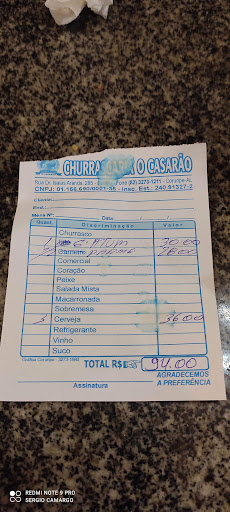 CHURRASCARIA O CASARÃO
(82) 3273-1211 - Coruripe-AL
CNPJ: 01.166.660/0001-35 - Insc. Est.: 240.91327-2
Cliente:
End.:
Mesa Nº: Data / /
Quant. Discriminação Valor
Churrasco
30.00
Carneiro
Comercial
Coração
Peixe
Salada Mista
Macarronada
Sobremesa
3 Cerveja 36.00
Refrigerante
Vinho
Suco
TOTAL R$ 94.00
Assinatura AGRADECEMOS
A PREFERÊNCIA
REDMI NOTE 9 PRO
SERGIO CAMARGO